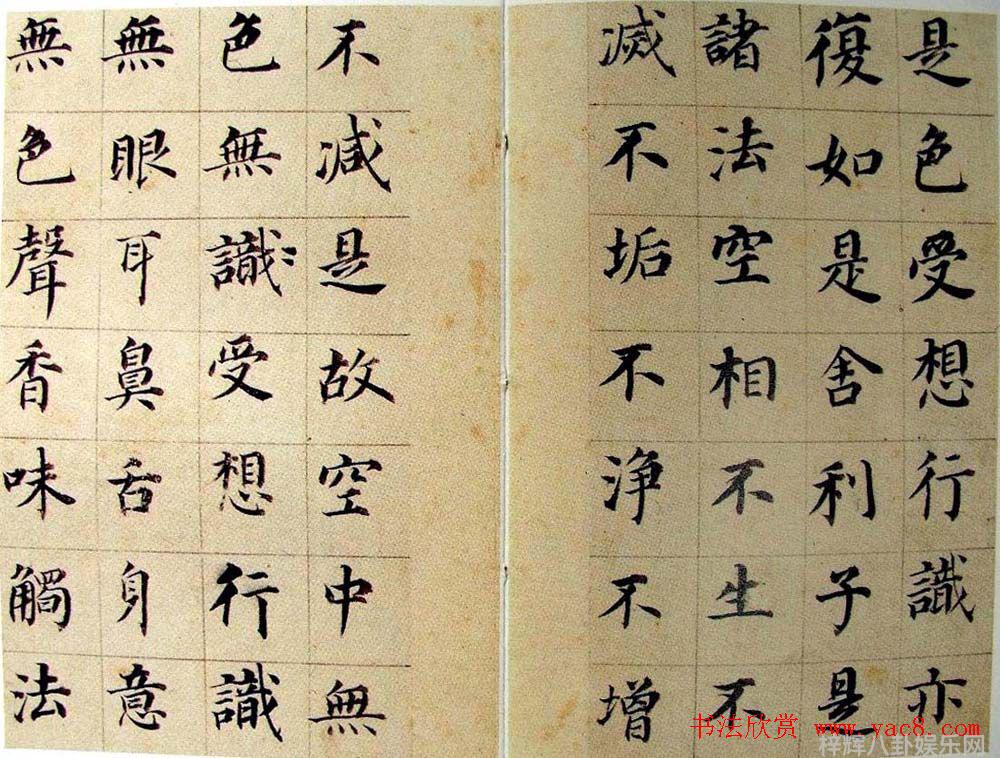 是色受想行識亦
復如是舍利子是
諸法空相不生不
滅不垢不淨不增
不減是故空中無
色無識受想行識
無眼耳鼻舌身意
無色聲香味觸法
书法欣赏 www.yac8.com
梓辉八卦娱乐网